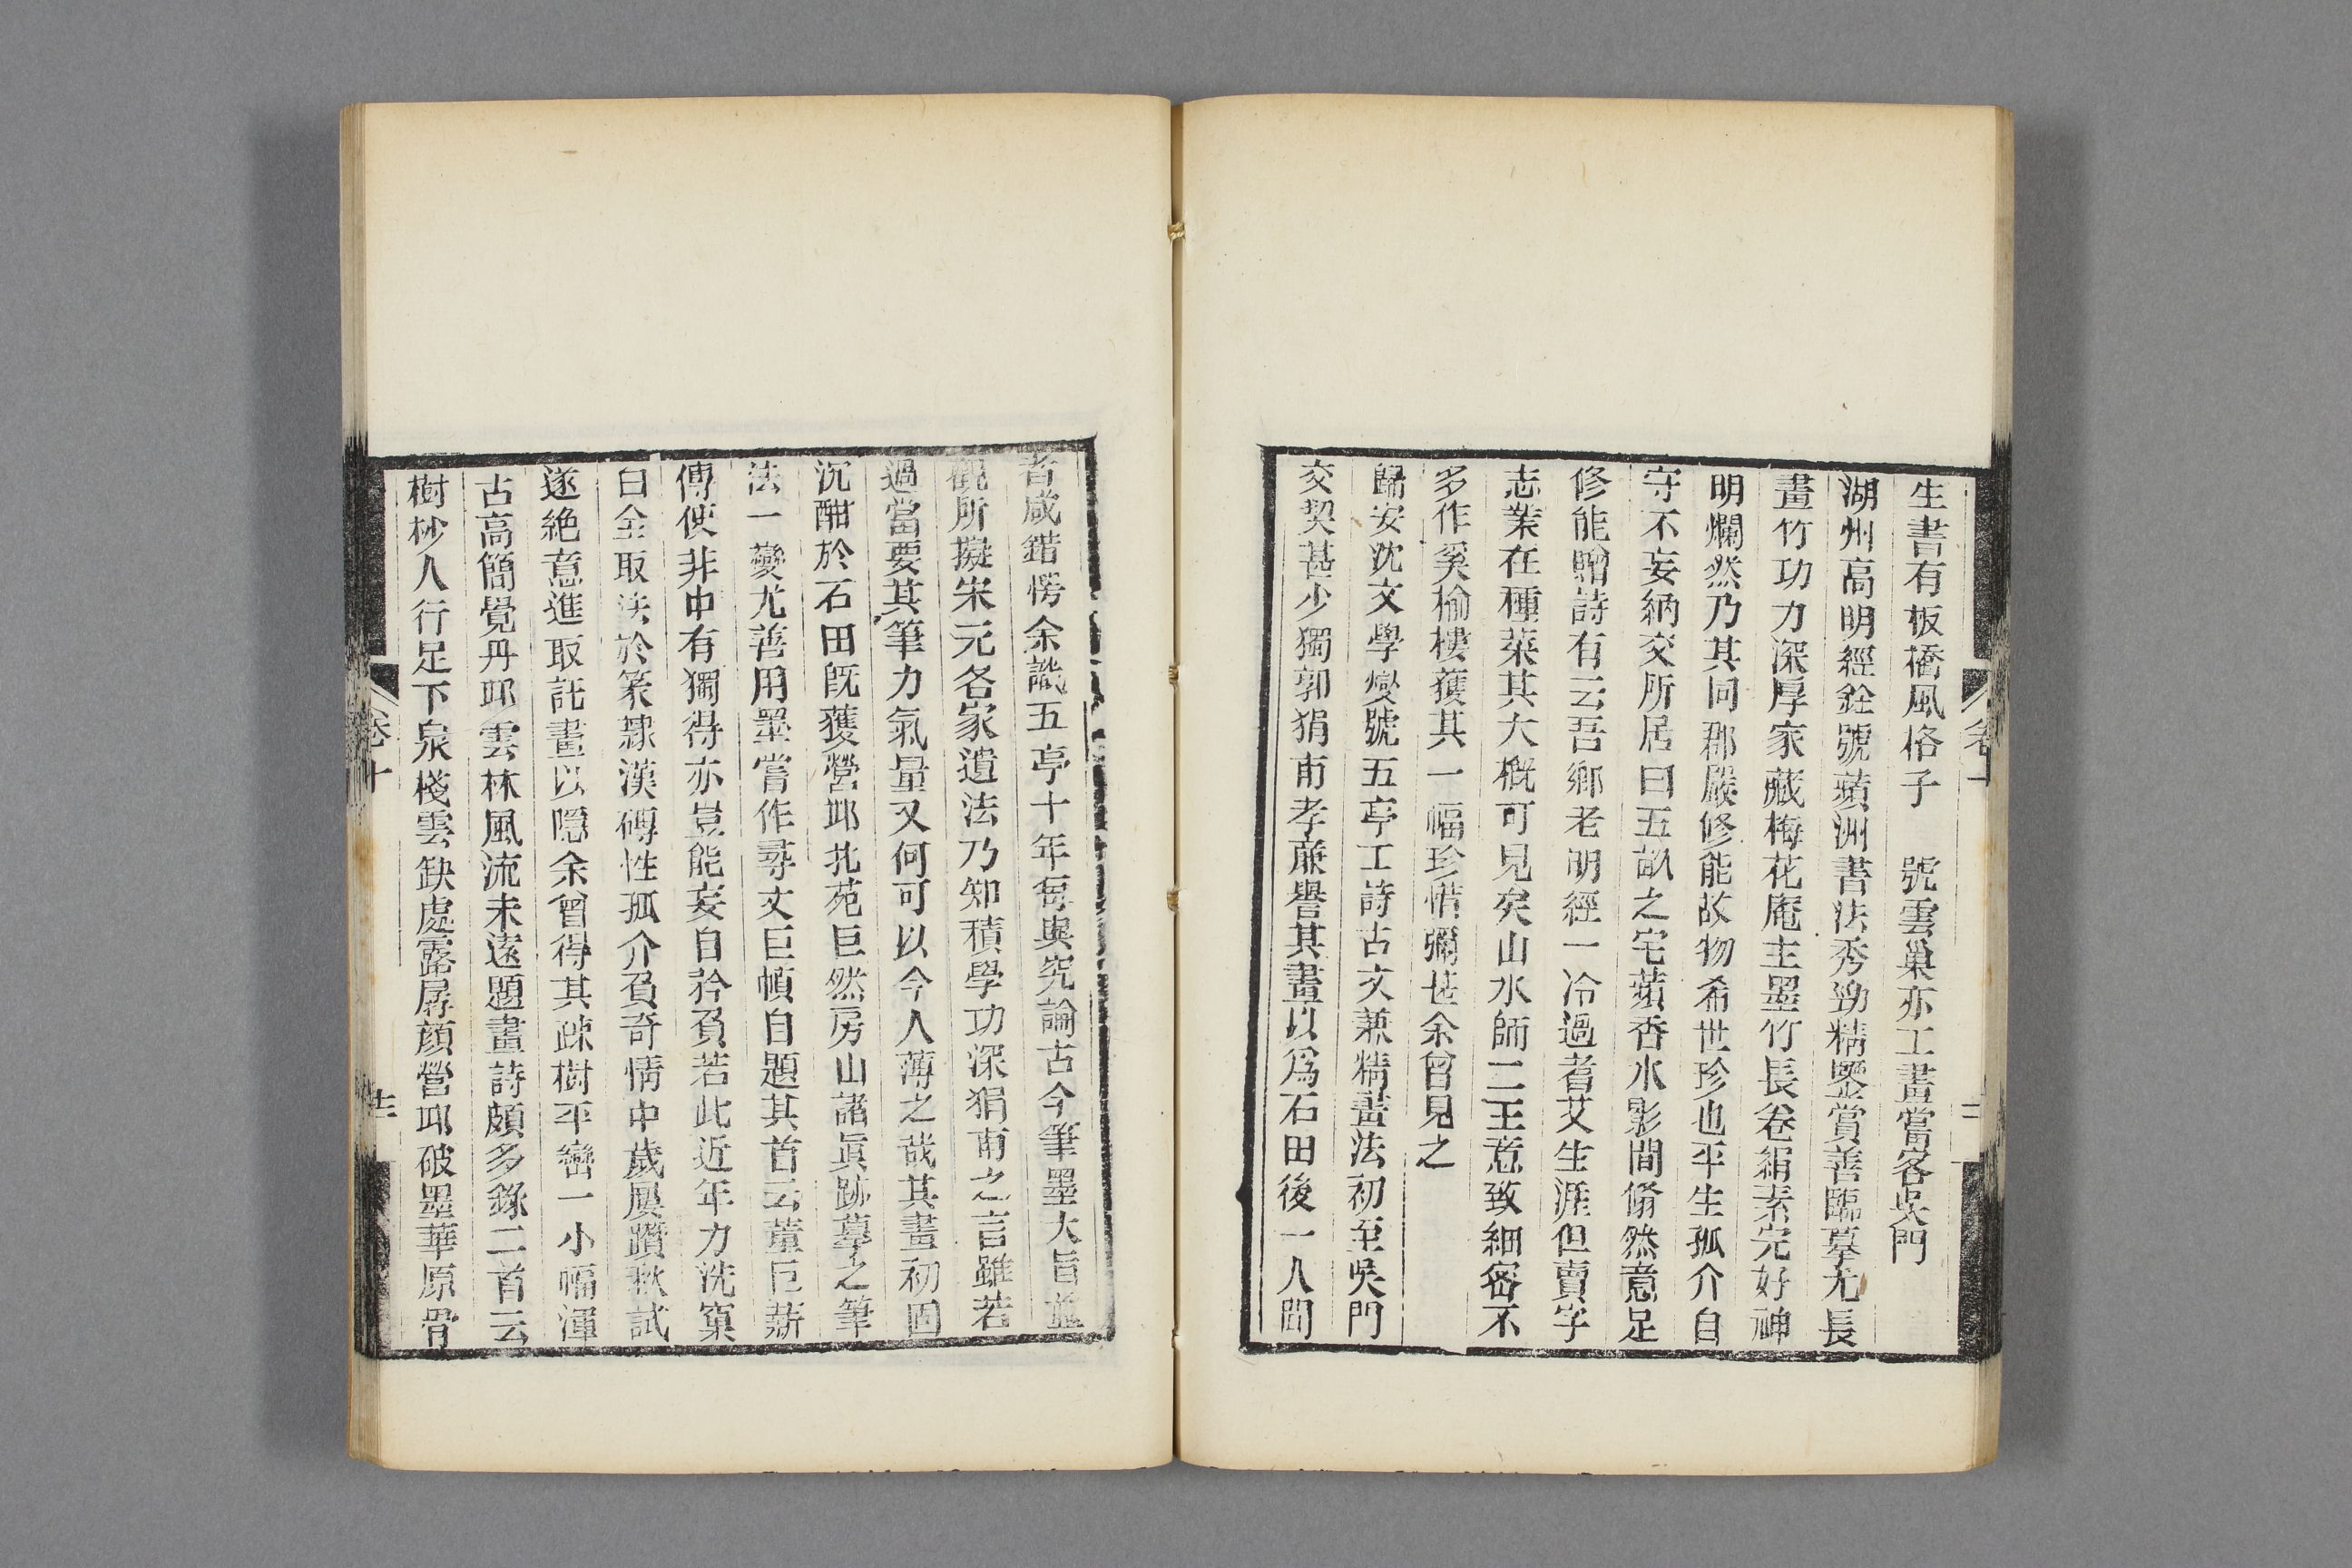 生書有板橋風格子　號雲巢亦工畫嘗客吳門
湖州高明經銓號蘋洲書法秀勁精鑒賞善臨摹尤長
畫竹功力深厚家藏梅花庵主墨竹長卷絹素完好神
明爛然乃其同郡嚴修能故物希世珍也平生孤介自
守不妄納交所居曰五畝之宅蘋香水影間翛然意足
修能贈詩有云吾鄉老明經一冷過耆艾生涯但賣字
志業在種菜其大概可見矣山水師二王意致細密不
多作奚榆樓獲其一幅珍惜彌甚余曾見之
歸安沈文學燮號五亭工詩古文兼精畫法初至吳門
交契甚少獨郭狷甫孝廉譽其畫以爲石田後一人聞
者咸錯愕余識五亭十年每與究論古今筆墨大旨並
觀所擬宋元各家遺法乃知積學功深狷甫之言雖若
過當要其筆力氣量又何可以今人薄之哉其畫初固
沉酣於石田既獲營邱北苑巨然房山諸眞跡摹之筆
法一變尤善用墨嘗作尋丈巨幀自題其首云董巨薪
傳使非中有獨得亦豈能妄自矜負若此近年力洗窠
臼全取法於篆隸漢磚性孤介負奇情中歲屢躓秋試
遂絕意進取託畫以隱余曾得其疎樹平巒一小幅渾
古高簡覺丹邱雲林風流未遠題畫詩頗多錄二首云
樹杪人行足下泉棧雲缺處露孱顏營邱破墨華原骨
卷十